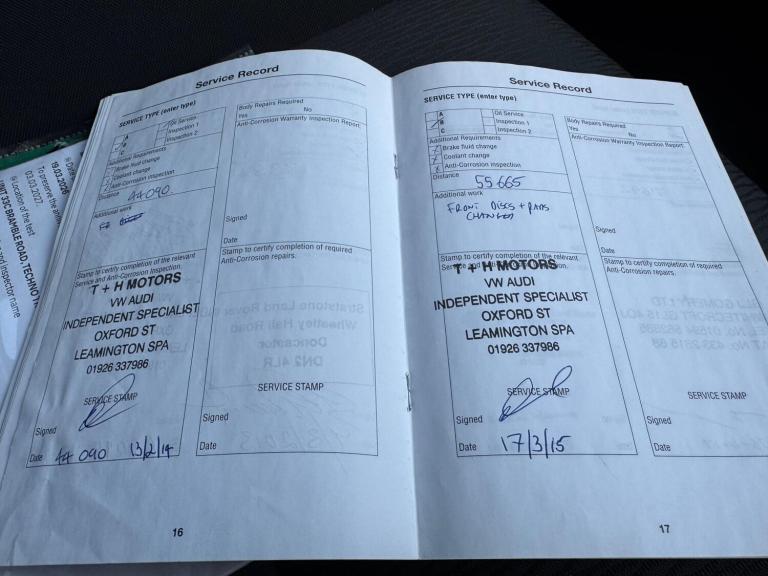 Service Record
SERVICE TYPE (enter type)
A
B
C
Oil Service
Inspection 1
Inspection 2
Additional Requirements
Brake fluid change
Coolant change
Anti-Corrosion inspection
Distance 44090
Additional work
Body Repairs Required
Yes No
Anti-Corrosion Warranty Inspection Report
Signed
Date
Stamp to certify completion of the relevant
Service and Anti-Corrosion Inspection.
T + H MOTORS
VW AUDI
INDEPENDENT SPECIALIST
OXFORD ST
LEAMINGTON SPA
01926 337986
SERVICE STAMP
Signed
Date 44 090 13/2/14
Stamp to certify completion of required
Anti-Corrosion repairs.
SERVICE STAMP
Signed
Date
16
Service Record
SERVICE TYPE (enter type)
A
B
C
Oil Service
Inspection 1
Inspection 2
Additional Requirements
Brake fluid change
Coolant change
Anti-Corrosion inspection
Distance 55665
Additional work
FRONT DISCS + PADS
CHANGED
Body Repairs Required
Yes No
Anti-Corrosion Warranty Inspection Report
Signed
Date
Stamp to certify completion of the relevant
T + H MOTORS
VW AUDI
INDEPENDENT SPECIALIST
OXFORD ST
LEAMINGTON SPA
01926 337986
SERVICE STAMP
Signed
Date 17/3/15
Stamp to certify completion of required
Anti-Corrosion repairs.
SERVICE STAMP
Signed
Date
17
19.03.2026
To preserve the
23.03.2027.
Location of the test
UNIT 33C BRAMBLE ROAD, TECHNO
and inspector name